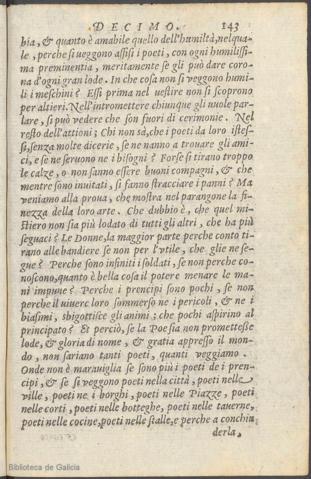 DECIMO. 143
bia, & quanto è amabile quello dell'humiltà, nel qua-
le, perche si ueggono assisi i poeti, con ogni humilissi-
ma preminentia, meritamente se gli può dare coro-
na d'ogni gran lode. In che cosa non si veggono humi-
li i meschini? Essi prima nel uestire non si scoprono
per altieri. Nell'intromettere chiunque gli uuole par-
lare, si può vedere che son fuori di cerimonie. Nel
resto dell'attioni; Chi non sà, che i poeti da loro istes-
si, senza molte dicerie, se ne uanno a trouare gli ami-
ci, e se ne seruono ne i bisogni? Forse si tirano troppo
le calze, o non sanno essere buoni compagni, & che
mentre sono inuitati, si fanno stracciare i panni? Ma
veniamo alla proua, che mostra nel parangone la fi-
nezza della loro arte. Che dubbio è, che quel mi-
stiero non sia più lodato di tutti gli altri, che ha più
seguaci? Le Donne, la maggior parte perche conto ti-
rano alle bandiere se non per l'vtile, che glie ne se-
gue? Perche sono infiniti i soldati, se non perche co-
noscono, quanto è bella cosa il potere menare le ma-
ni impune? Perche i prencipi sono pochi, se non
perche il uiuere loro sommerso ne i pericoli, & ne i
biasimi, sbigottisce gli animi; che pochi aspirino al
principato? Et perciò, se la Poesia non promettesse
lode, & gloria di nome, & gratia appresso il mon-
do, non sariano tanti poeti, quanti veggiamo.
Onde non è marauiglia se sono più i poeti de i pren-
cipi, & se si veggono poeti nella città, poeti nelle
ville, poeti ne i borghi, poeti nelle Piazze, poeti
nelle corti, poeti nelle botteghe, poeti nelle tauerne,
poeti nelle cocine, poeti nelle stalle, e perche a conchiu
derla,
Biblioteca de Galicia